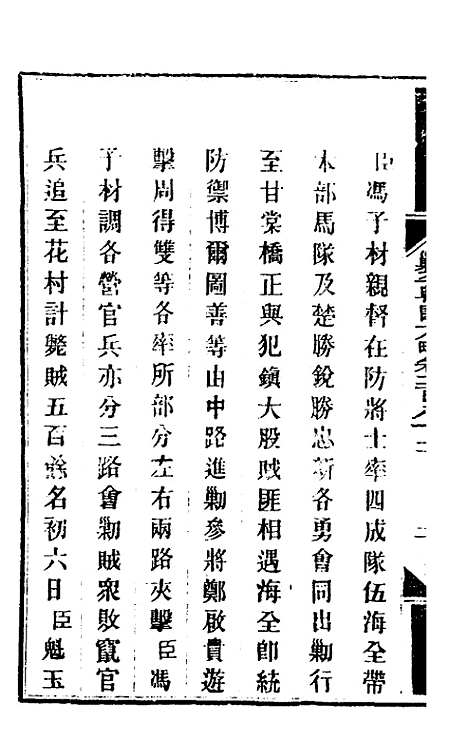 臣馮子材親督在防將士率四成隊伍海全帶
本部馬隊及楚勝銳勝忠新各勇會同出勦行
至甘棠橋正與犯鎮大股賊匪相遇海全卽統
防禦博爾圖善等由中路進勦參將鄭啟貴遊
擊周得雙等各率所部分左右兩路夾擊臣馮
子材調各營官兵亦分三路會勦賊衆敗竄官
兵追至花村計斃賊五百餘名初六日臣魁玉